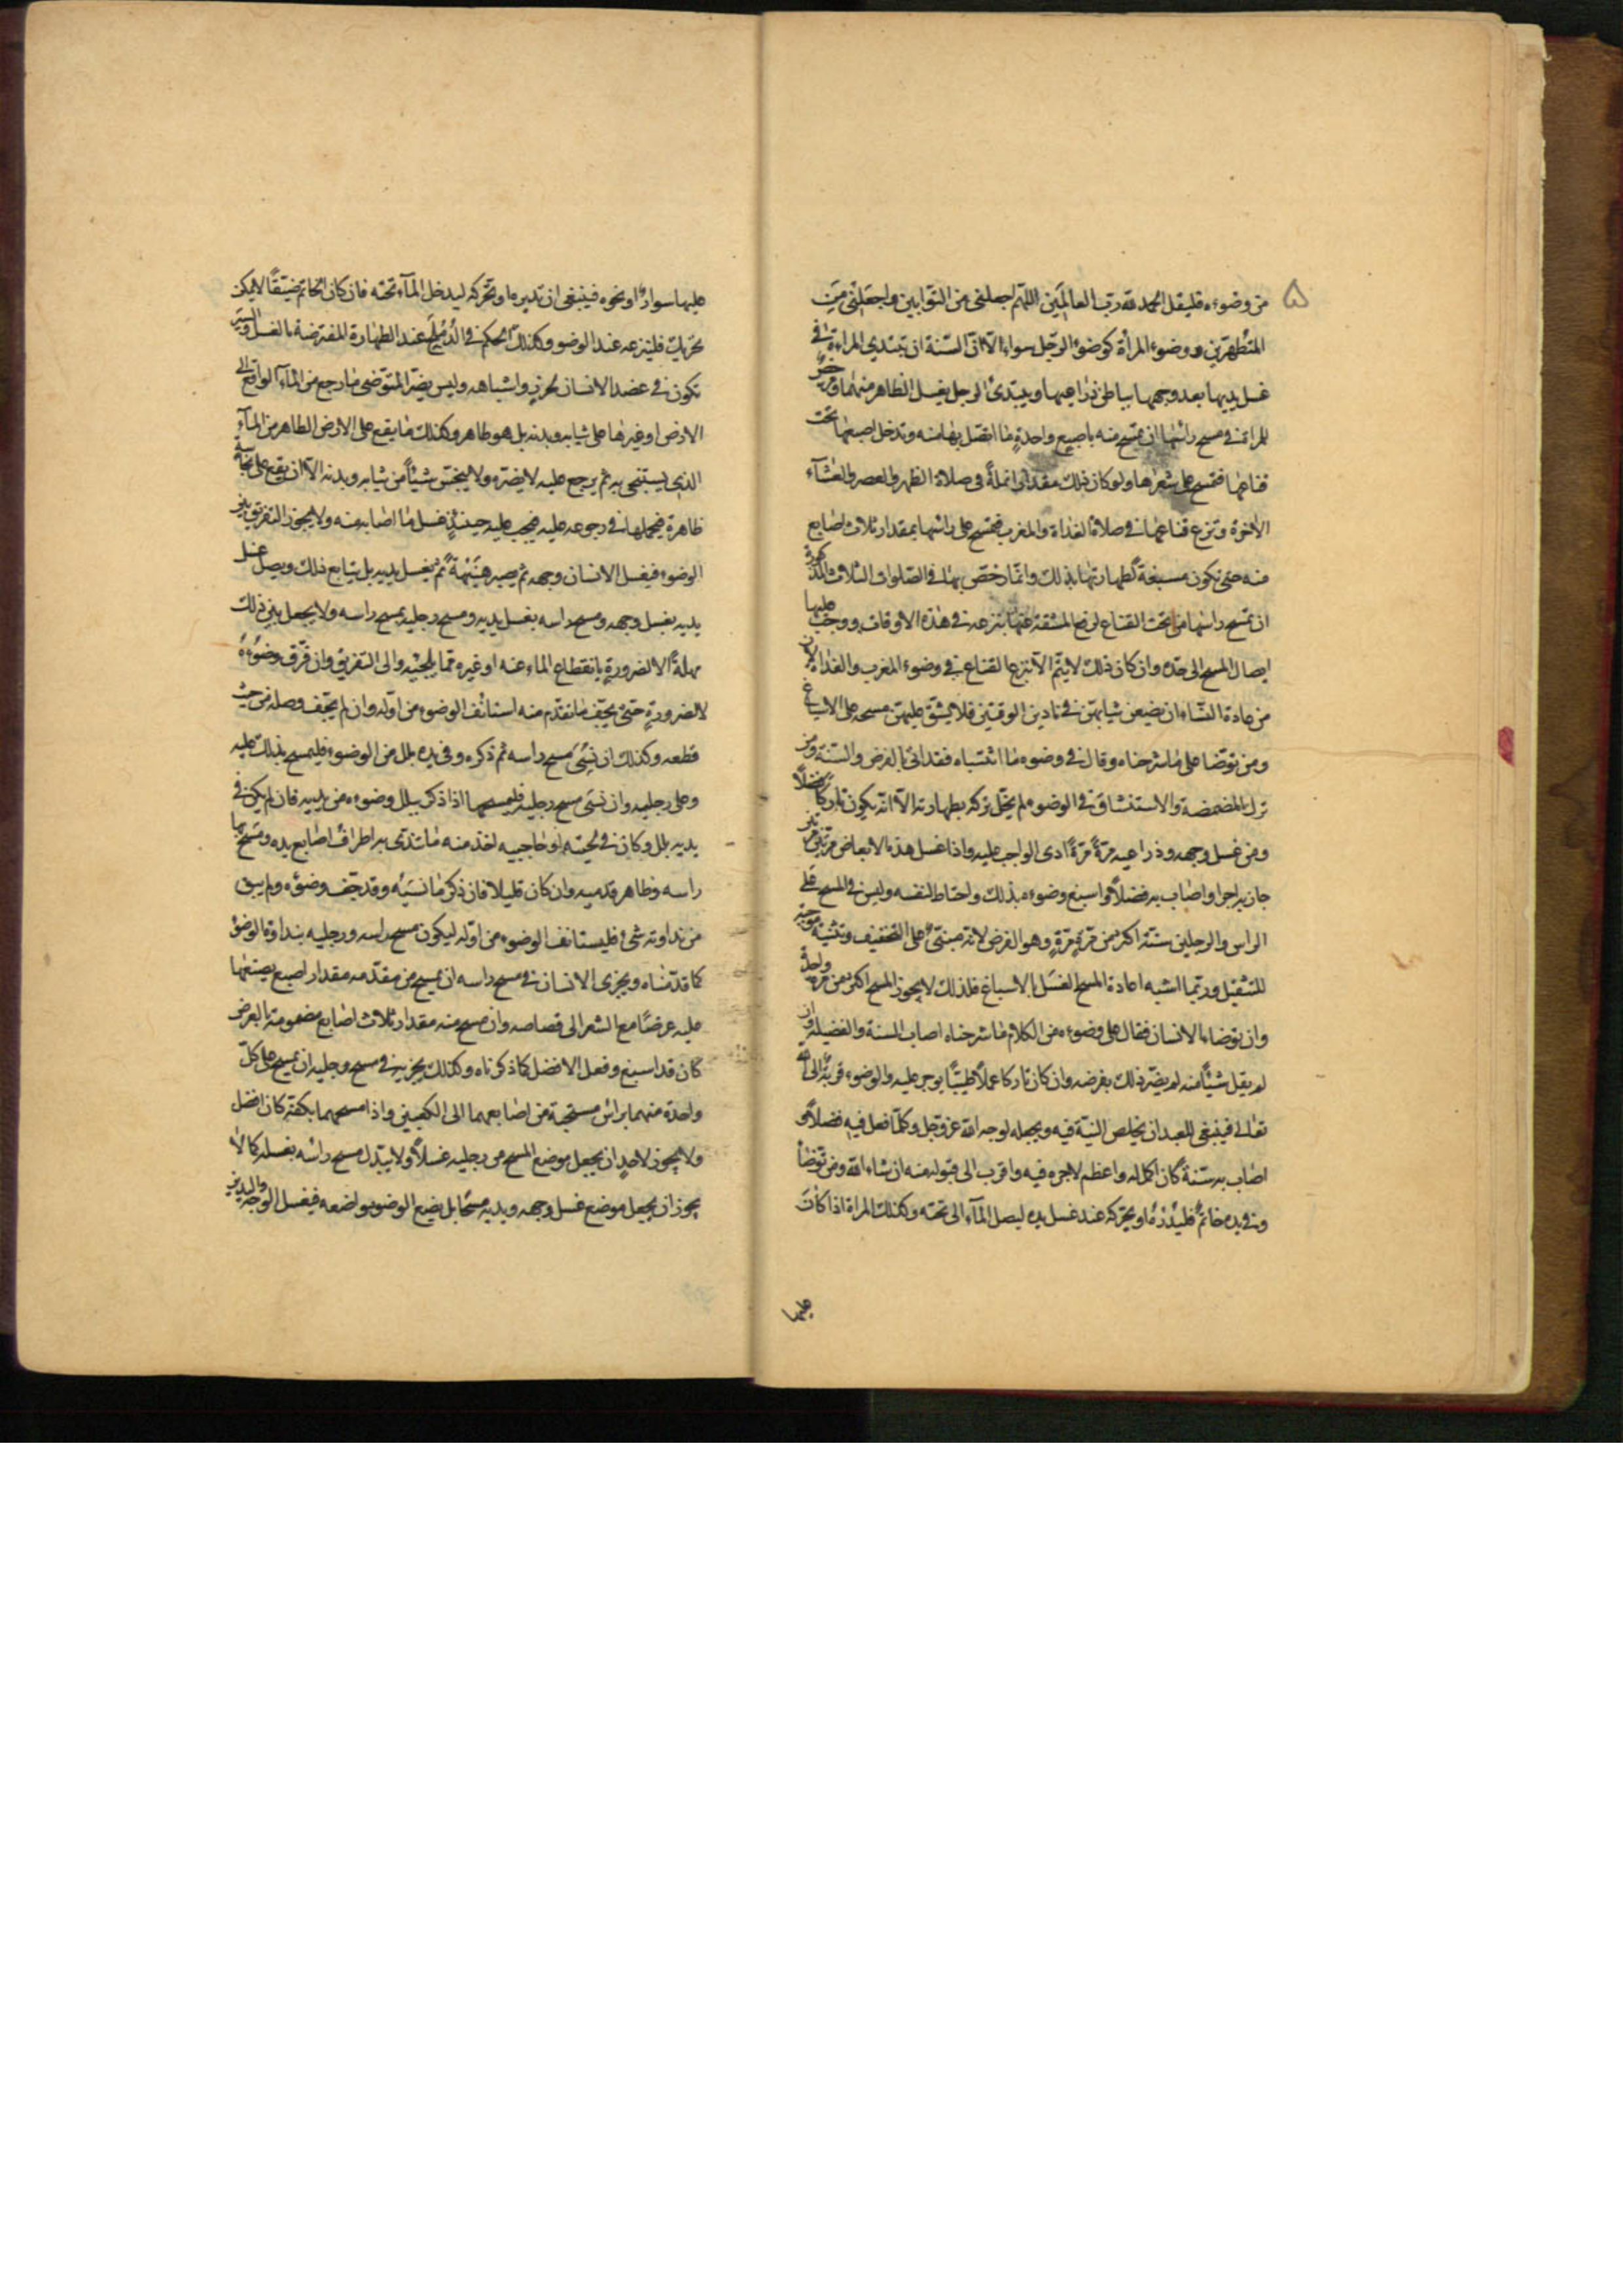 ۵
من وضوءه فليقل الحمد لله رب العالمين اللهم اجعلنى من التوابين واجعلنى من
المتطهرين ووضوء المرأة كوضوء الرجل سواء الا ان السنة ان تبتدى المراة فى
غسل يديها بعد وجهها بباطن ذراعيها ويبتدئ الرجل بغسل الظاهر منهما ورخص
للمراة فى مسح راسها ان تمسح منه باصبع واحدة ما اتصل بها منه وتدخل اصبعها تحت
قناعها فتمسح على شعرها ولو كان ذلك مقدار انملة فى صلاة الظهر والعصر والعشآء
الاخرة وتنزع قناعها فى صلاة الغداة والمغرب فتمسح على راسها بمقدار ثلاث اصابع
منه حتى تكون مسبغة لطهارتها بذلك وانما رخص لها فى الصلوات الثلاث المذكورة
ان تمسح راسها من تحت القناع لوضع المشقة عنها بنزعه فى هذه الاوقات ووجب عليها
ايصال المسح الى حده وان كان ذلك لا يتم الا بنزع القناع فى وضوء المغرب والغداة لان
من عادة النساء ان يضعن ثيابهن فى ناذين الوقتين فلا يشق عليهن مسحه على الاسباغ
ومن توضا على ما شرحناه وقال فى وضوءه ما اثبتناه فقد اتى بالفرض والسنة ومن
ترك المضمضة والاستنشاق فى الوضوء لم يخل تركه بطهارته الا انه يكون تاركا فضلا
ومن غسل وجهه وذراعيه مرة مرة ادى الواجب عليه واذا غسل هذه الابعاض مرتين مرتين
حاز به اجرا واصاب به فضلا واسبغ وضوءه بذلك واحتاط لنفسه وليس فى المسح على
الراس والرجلين سنة اكثر من مرة مرة وهو الفرض لانه مبنى على التخفيف وتثنيته موجبة
للتثقيل وربما اشبه اعادة المسح الغسل بالاسباغ فلذلك لا يجوز المسح اكثر من مرة واحدة
وان توضاء الانسان فقال على وضوءه من الكلام ما شرحناه اصاب السنة والفضيلة وان
لم يقل شيئا منه لم يضره ذلك بفرضه وان كان تاركا عملا طيبا يوجر عليه والوضوء قربة الى الله
تعالى فينبغى للعبد ان يخلص النية فيه ويجعله لوجه الله عز وجل وكلما فعل فيه فضلا و
اصاب به سنة كان اكمل له واعظم لاجره فيه واقرب الى قبوله منه ان شاء الله ومن توضا
وفى يده خاتم فليدره او يحركه عند غسل يده ليصل المآء الى تحته وكذلك المراة اذا كان
عليها
عليها سوار او نحوه فينبغى ان تديره او تحركه ليدخل المآء تحته فان كان الخاتم ضيقا لا يمكن
تحريك فلينزعه عند الوضو وكذلك الحكم فى الدملج عند الطهارة المفترضة بالغسل والسير
تكون فى عضد الانسان لحرز واشباهه وليس يضر المتوضى ما رجع من المآء الواقع الى
الارض او غيرها على ثيابه وبدنه بل هو طاهر وكذلك ما يقع على الارض الطاهر من المآء
الذى يستنجى به ثم يرجع عليه لا يضره ولا ينجس شيئا من ثيابه وبدنه الا ان يقع على نجاسة
ظاهرة فيحملها فى رجوعه عليه فيجب عليه حينئذ غسل ما اصابه منه ولا يجوز التفريق بين
الوضوء فيغسل الانسان وجهه ثم يصبر هنيئة ثم يغسل يديه بل يتابع ذلك ويصل غسل
يديه بغسل وجهه ومسح راسه بغسل يديه ومسح رجليه بمسح راسه ولا يجعل بين ذلك
مهلة الا لضرورة بانقطاع الماء عنه او غيره مما يلجئه والى التفريق وان فرق وضوءه
لا لضرورة حتى يجف ما تقدم منه استانف الوضوء من اوله وان لم يجف وصله من حيث
قطعه وكذلك ان نسى مسح راسه ثم ذكره وفى يده بلل من الوضوء فليمسح بذلك عليه
وعلى رجليه وان نسى مسح رجليه فليمسحهما اذا ذكر ببلل وضوءه من يديه فان لم يكن فى
يديه بلل وكان فى لحيته او حاجبيه اخذ منه ما تندى به اطراف اصابع يده ومسح بها
راسه وظاهر قدميه وان كان قليلا فان ذكر ما نسيه وقد جف وضوءه ولم يبق
من نداوته شئ فليستانف الوضوء من اوله ليكون مسح راسه ورجليه بنداوة الوضوء
كما قدمناه ويجزى الانسان فى مسح راسه ان يمسح من مقدمه مقدار اصبع يضعها
عليه عرضا مع الشعر الى قصاصه وان مسح منه مقدار ثلاث اصابع مضمومة بالعرض
كان قد اسبغ وفعل الافضل كما ذكرناه وكذلك يجزيه فى مسح رجليه ان يمسح على كل
واحدة منهما براس مسبحة من اصابعهما الى الكعبين واذا مسحهما بكفه كان افضل
ولا يجوز لاحد ان يجعل موضع المسح من رجليه غسلا ولا يبدل مسح راسه بغسله كما لا
يجوز ان يجعل موضع غسل وجهه ويديه مسحا بل يضع الوضوء مواضعه فيغسل الوجه واليدين